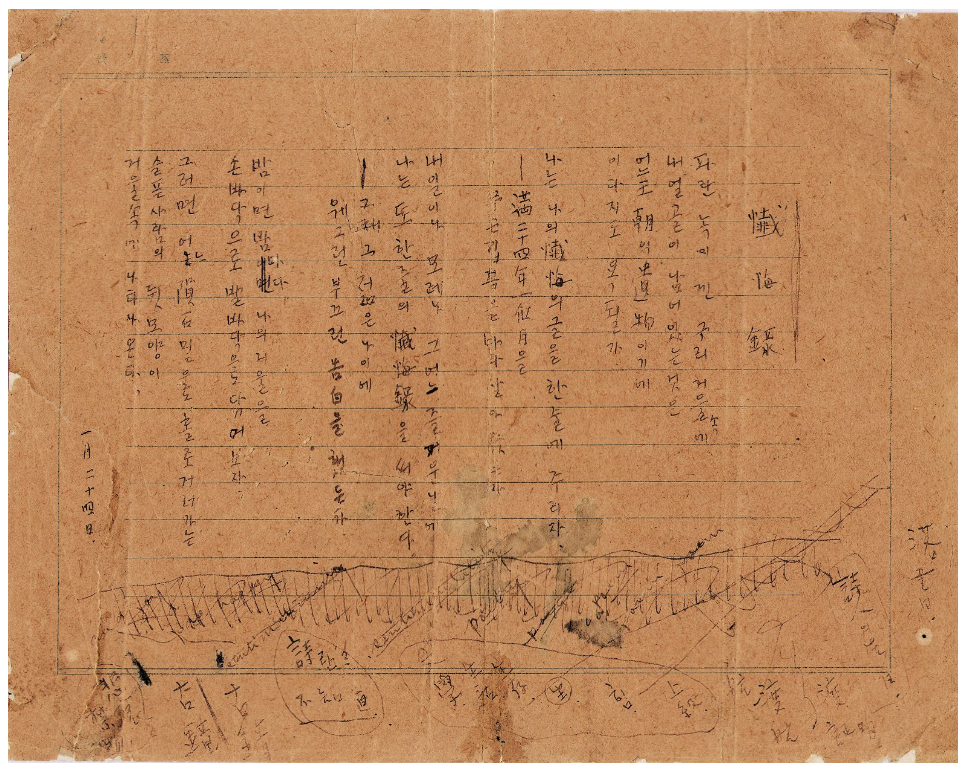 懺悔錄
파란 녹이 낀 구리 거울속에
내 얼골이 남어있는 것은
어느 王朝의遺物이기에
이다지도 욕될가.
나는 나의 懺悔의글을 한줄에 주리자.
— 滿二十四年一個月을
무슨 깁븜을 바라 살아 왔든가
내일이나 모레나 그 어느 즐거운 날에
나는 또 한줄의 懺悔錄을 써야한다.
— 그때 그 젊은 나이에
웨그런 부끄런 告白을 했든가
밤이면 밤마다 나의 거울을
손바닥으로 발바닥으로 닦어 보자.
그러면 어느 隕石밑으로 홀로거러가는
슬픈사람의 뒷모양이
거울속에 나타나온다.
一月二十四日.
詩란?
不知道
生
힘
poem